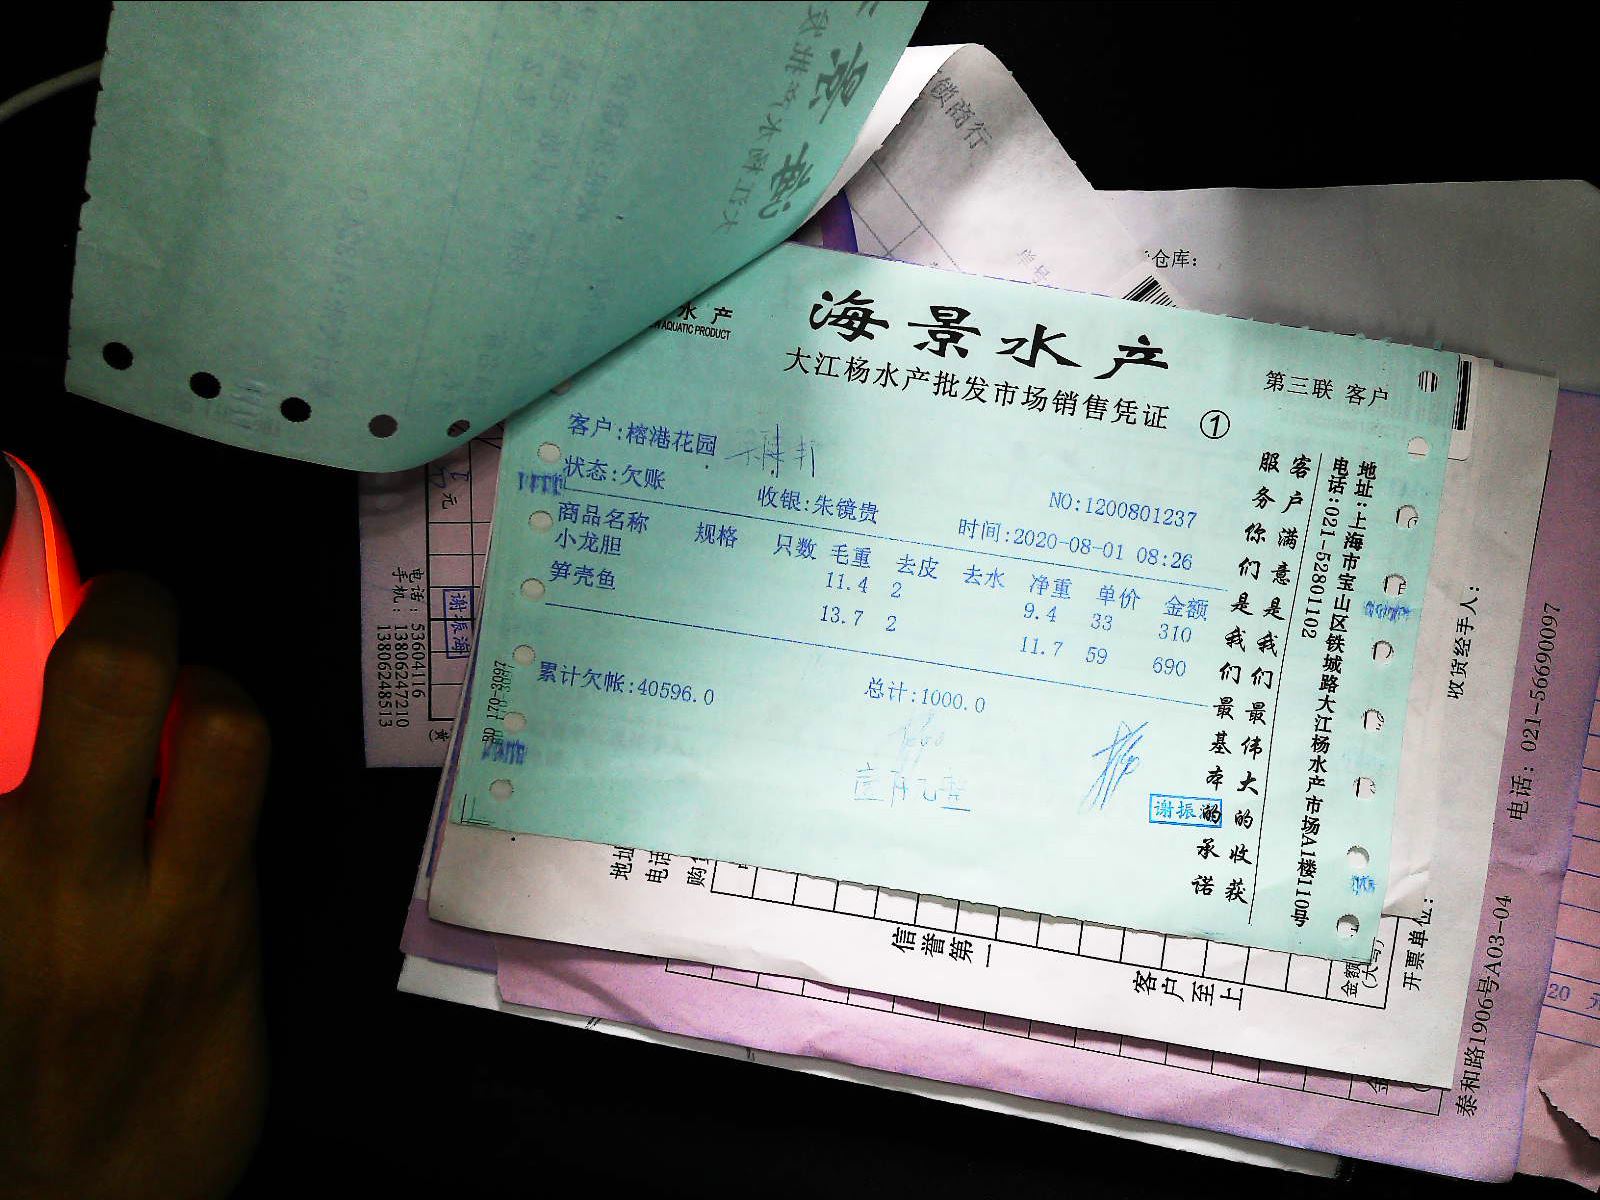 水产
AQUATIC PRODUCT
海景水产
大江杨水产批发市场销售凭证 ①
第三联 客户
客户:榕港花园
状态:欠账
收银:朱镜贵
NO:1200801237
时间:2020-08-01 08:26
商品名称 规格 只数 毛重 去皮 去水 净重 单价 金额
小龙胆 11.4 2 9.4 33 310
笋壳鱼 13.7 2 11.7 59 690
累计欠帐:40596.0
总计:1000.0
谢振
客户满意是我们最伟大的收获
服务你们是我们最基本的承诺
地址:上海市宝山区铁城路大江杨水产市场A1楼110号
电话:021-52801102
仓库:
锁商行
元
谢振海
电话: 53604116
手机: 13806247210
13806248513
地址
电话
购
信誉第一
客户至上
金额
(大写)
开票单位:
收货经手人:
电话: 021-56690097
泰和路1906号A03-04
20 元